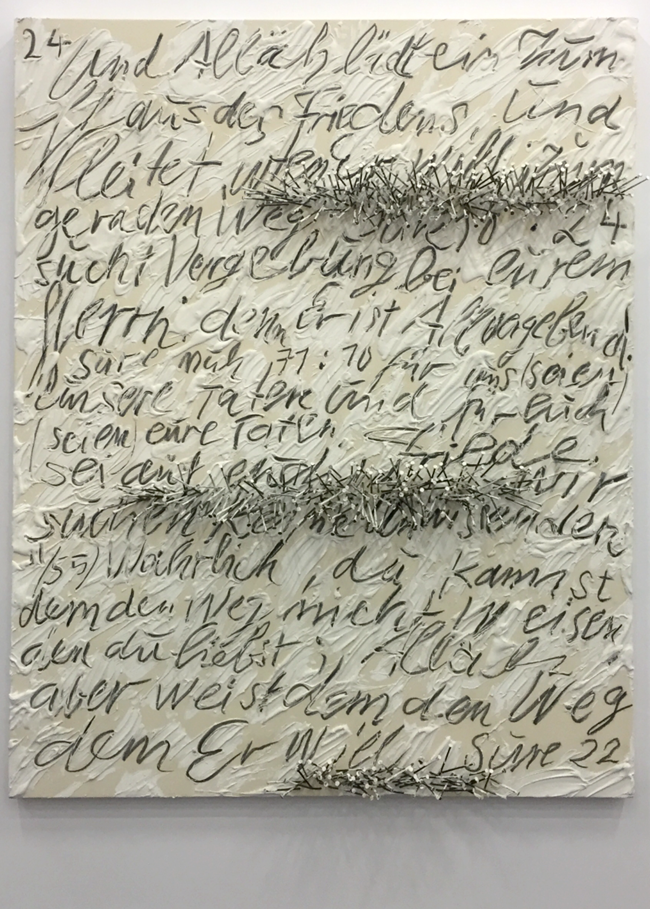 24
Und Alläh lädt ein zum
aus des Friedens, Und
leitet, wem Er will, zum
geraden Weg Sure 10 : 24
sucht Vergebung bei eurem
Herrn. denn Er ist Allvergebend.
Sure nuh, 71:10 für uns (seien)
unsere Taten und für euch
(seien) eure Taten. Friede
sei auf euch wir
suchen keine Unwissenden
55) Wahrlich, du kannst
dem den Weg nicht weisen
den du liebst; Allah
aber weist dem den Weg
dem Er Will. Sure 22